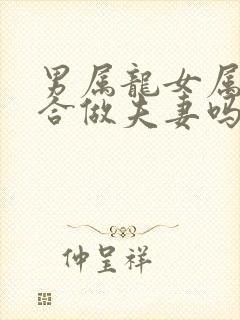 男属龍女属
合做夫妻吗
仲呈祥